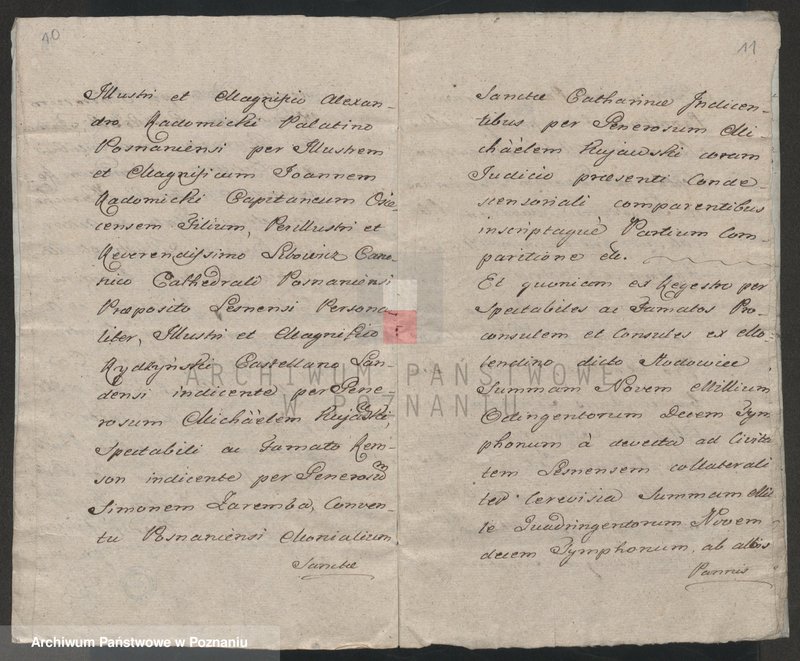 10
Illustri et Magnifico Alexan-
dro Radomicki Palatino
Posnaniensi per Illustrem
et Magnificum Joannem
Radomicki Capitaneum Osie-
censem Filium, Perillustri et
Reverendissimo Libowicz Cano-
nico Cathedrali Posnaniensi
Præposito Lesnensi Persona-
liter, Illustri et Magnifico
Rydzyński Castellano San-
densi indicente per Gene-
rosum Michäelem Kujawski,
Spectabili ac Famato Kem-
son indicente per Generosum
Simonem Zaremba, Conven-
tu Posnaniensi Monialium
Sanctæ
11
Sanctæ Catharinæ Indicen-
tibus per Generosum Mi-
chäelem Kujawski coram
Judicio præsenti Conde-
scensoriali comparentibus
inscriptaquè Partium Com-
paritione etc.
Et quoniam ex Regestro per
Spectabiles ac Famatos Pro-
consulem et Consules ex Mo-
lendino dicto
Summam Novem Millium
Octingentorum Decem Tym-
phonum à devecta ad Civita
tem Lesnensem collaterali
ter Cerevisia Summam Mil-
le Quadringentorum Novem-
decem Tymphonum, ab albis
Pannis
ARCHIWUM PAŃSTWOWE
W POZNANIU
Archiwum Państwowe w Poznaniu